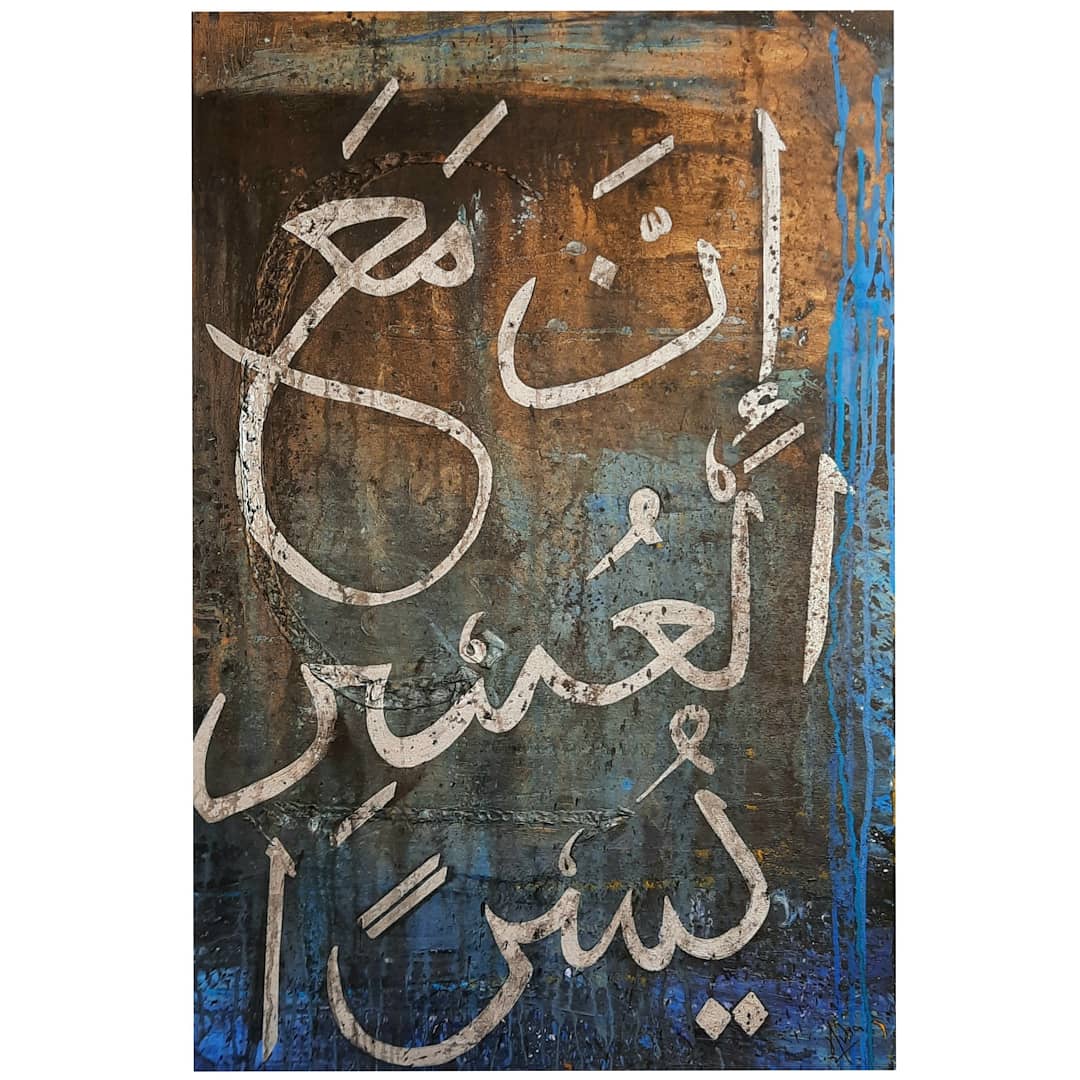 إِنَّ مَعَ
ٱلْعُسْرِ
يُسْرًا